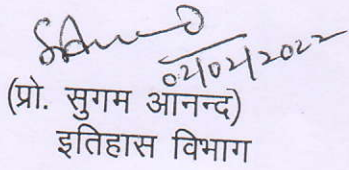 02/02/2022
(प्रो. सुगम आनन्द)
इतिहास विभाग